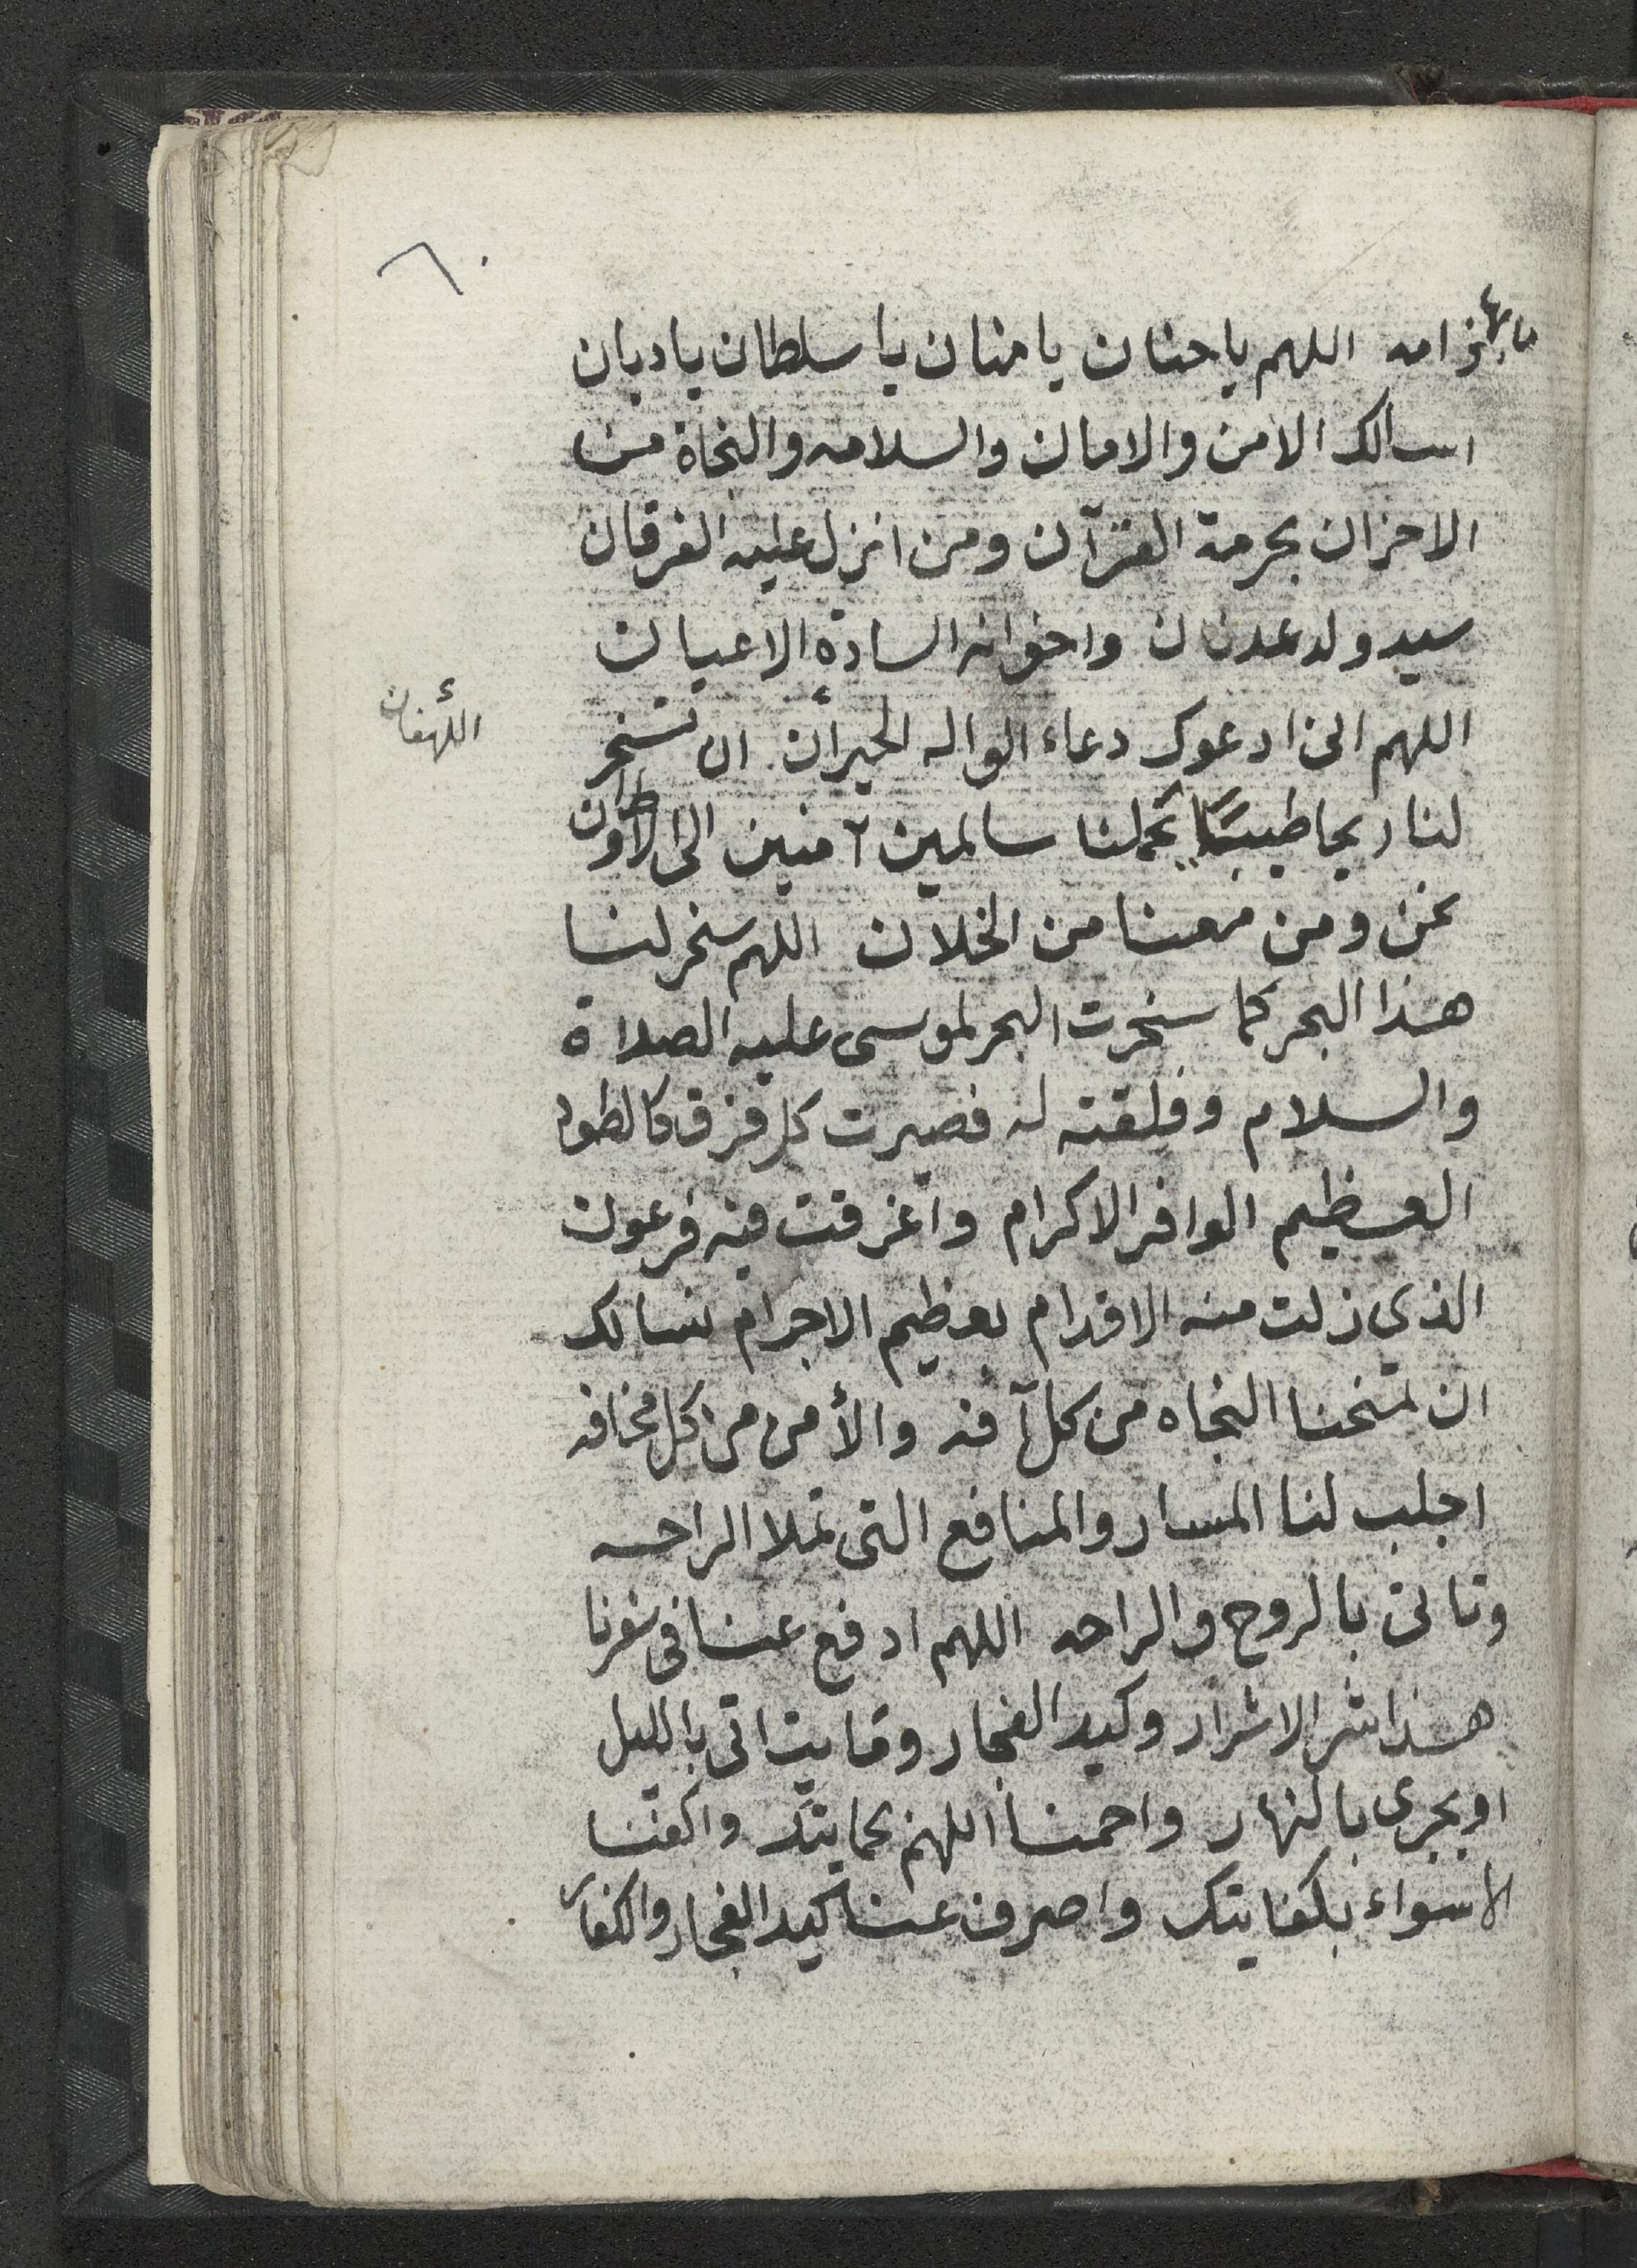 ٦٠
اللهم ياحنان يامنان ياسلطان ياديان
اسالك الامن والامان والسلامه والنجاة من
الاحزان بحرمة القرآن ومن انزل عليه الفرقان
سيد ولد عدنان واخوانه السادة الاعيان
اللهم انى ادعوك دعاء الواله الحيرأن ان تسخر
اللهفان
لنا ريحا طيبًا تحملنا سالمين آمنين الى الاوطان
نحن ومن معنا من الخلان اللهم سخر لنا
هذا البحر كما سخرت البحر لموسى عليه الصلاة
والسلام وفلقته له فصيرت كل فرق كالطود
العظيم الوافر الاكرام واغرقت فيه فرعون
الذي زلت منه الاقدام بعظيم الاجرام نسالك
ان تمنحنا النجاه من كل آفه والأمن من كل مخافه
اجلب لنا المسار والمنافع التى تملا الراحه
وتاتى بالروح والراحه اللهم ادفع عنا فى سفرنا
هذا شر الاشرار وكيد الفجار وما ياتى بالليل
او يجرى بالنهار واحمنا اللهم بحمايتك واكفنا
الاسواء بكفايتك واصرف عنا كيد الفجار والكفار